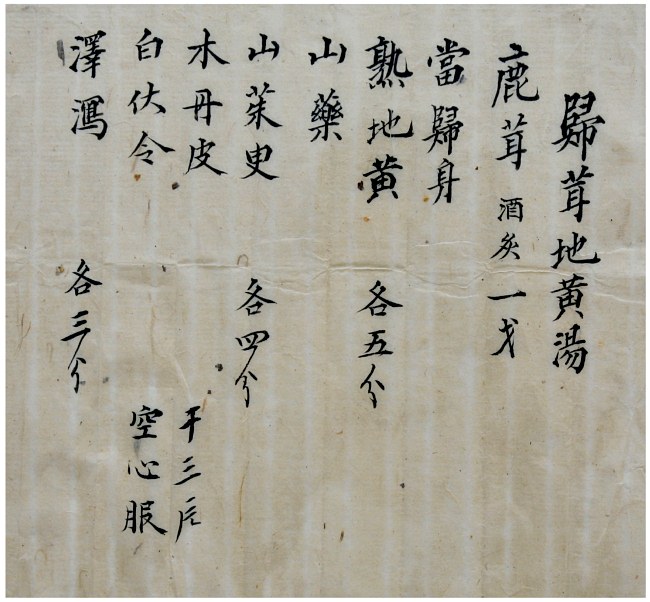 歸茸地黃湯
鹿茸 酒炙 一戈
當歸身
熟地黃 各五分
山藥
山茱史 各四分
木丹皮
干三片
白伏令
空心服
澤瀉 各三分